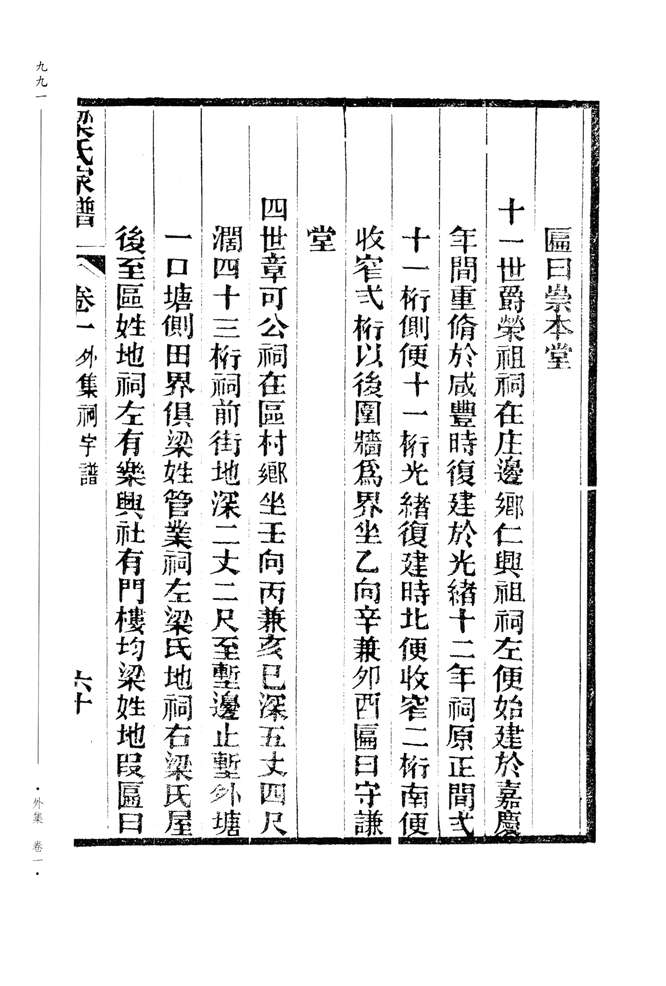 匾曰崇本堂
十一世爵榮祖祠在庄邊鄉仁興祖祠左便始建於嘉慶
年間重脩於咸豐時復建於光緒十二年祠原正間弍
十一桁側便十一桁光緒復建時北便收窄二桁南便
收窄弍桁以後圍牆爲界坐乙向辛兼卯酉匾曰守謙
堂
四世章可公祠在區村鄉坐壬向丙兼亥巳深五丈四尺
濶四十三桁祠前街地深二丈二尺至塹邊止塹外塘
一口塘側田界俱梁姓管業祠左梁氏地祠右梁氏屋
後至區姓地祠左有樂興社有門樓均梁姓地叚匾曰
梁氏家譜
卷一外集祠宇譜
六十
九九一
·外集 卷一·